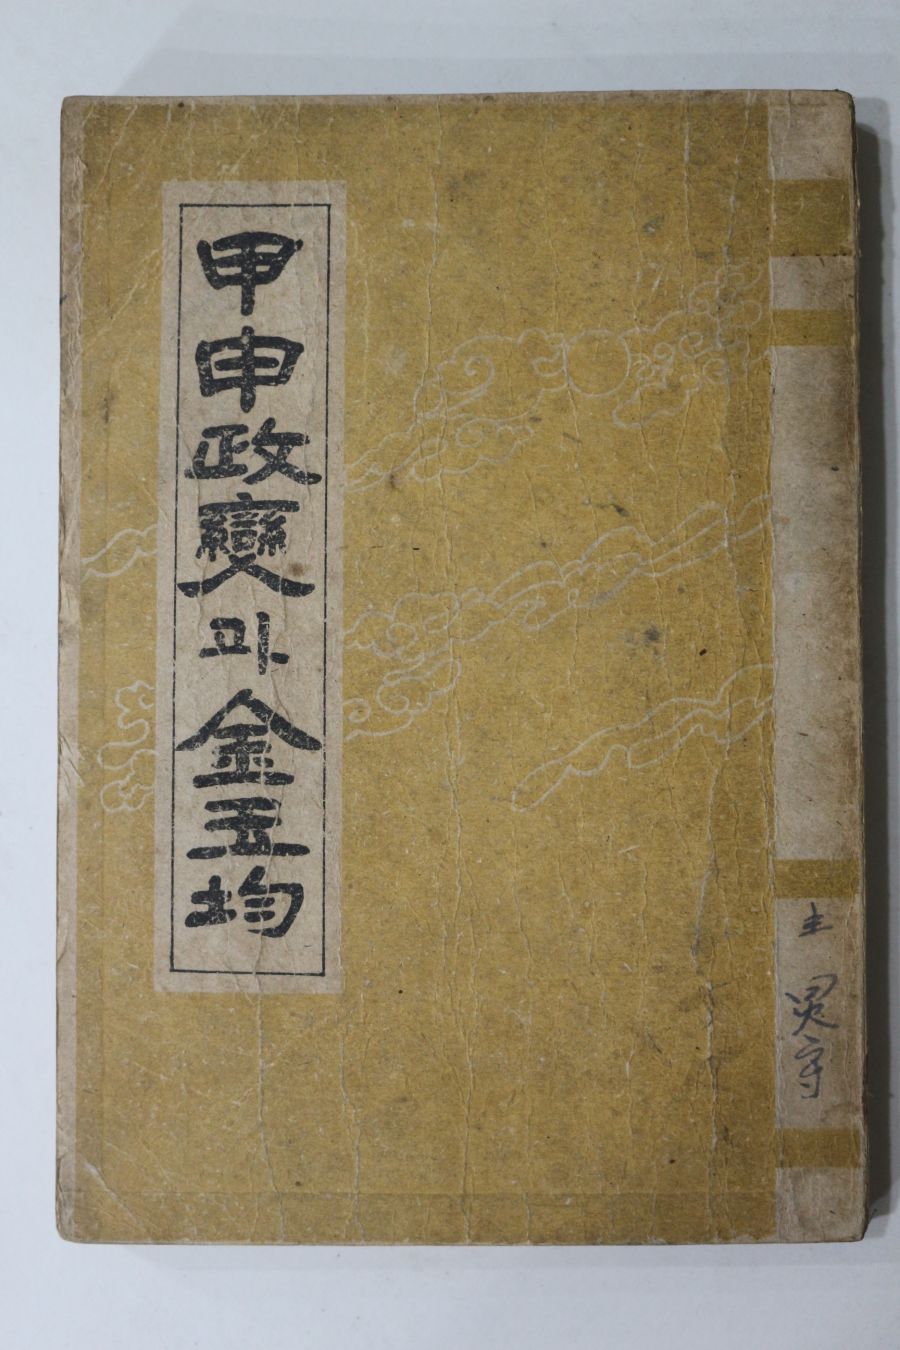 甲申政變과金玉均
主